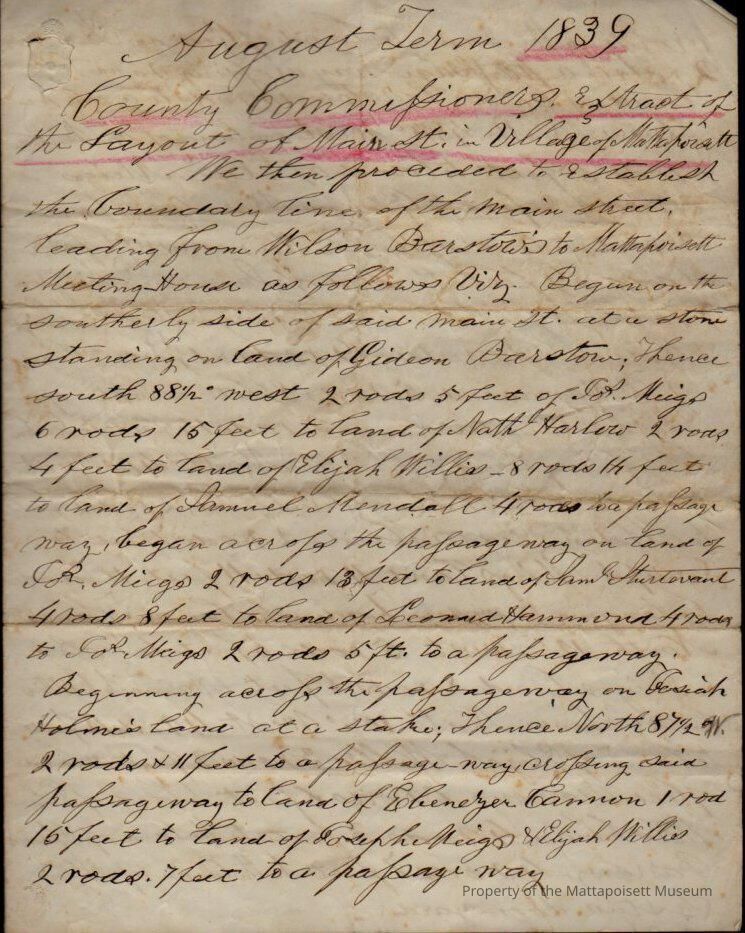 August Term 1839
County Commissioners. Extract of
the Layout of Main St. in Village of Mattapoisett
We then proceded to establish
the boundary line of the main street,
leading from Wilson Barstow's to Mattapoisett
Meeting House as follows Viz. Began on the
southerly side of said main St. at a stone
standing on land of Gideon Barstow; Thence
south 88½° west 2 rods 5 feet of Jos. Meigs
6 rods 15 feet to land of Nath. Harlow 2 rods
4 feet to land of Elijah Willis - 8 rods 14 feet
to land of Samuel Mendall 4 rods to a passage
way, began across the passageway on land of
Jos. Meigs 2 rods 13 feet to land of Saml. Sturtevant
4 rods 8 feet to land of Leonard Hammond 4 rods
to Jos. Meigs 2 rods 5 ft. to a passageway.
Beginning across the passageway on Josiah
Holmes land at a stake; Thence North 87½° W.
2 rods & 11 feet to a passage-way, crossing said
passageway to land of Ebenezer Cannon 1 rod
15 feet to land of Joseph Meigs & Elijah Willis
2 rods. 7 feet to a passage way
Property of the Mattapoisett Museum